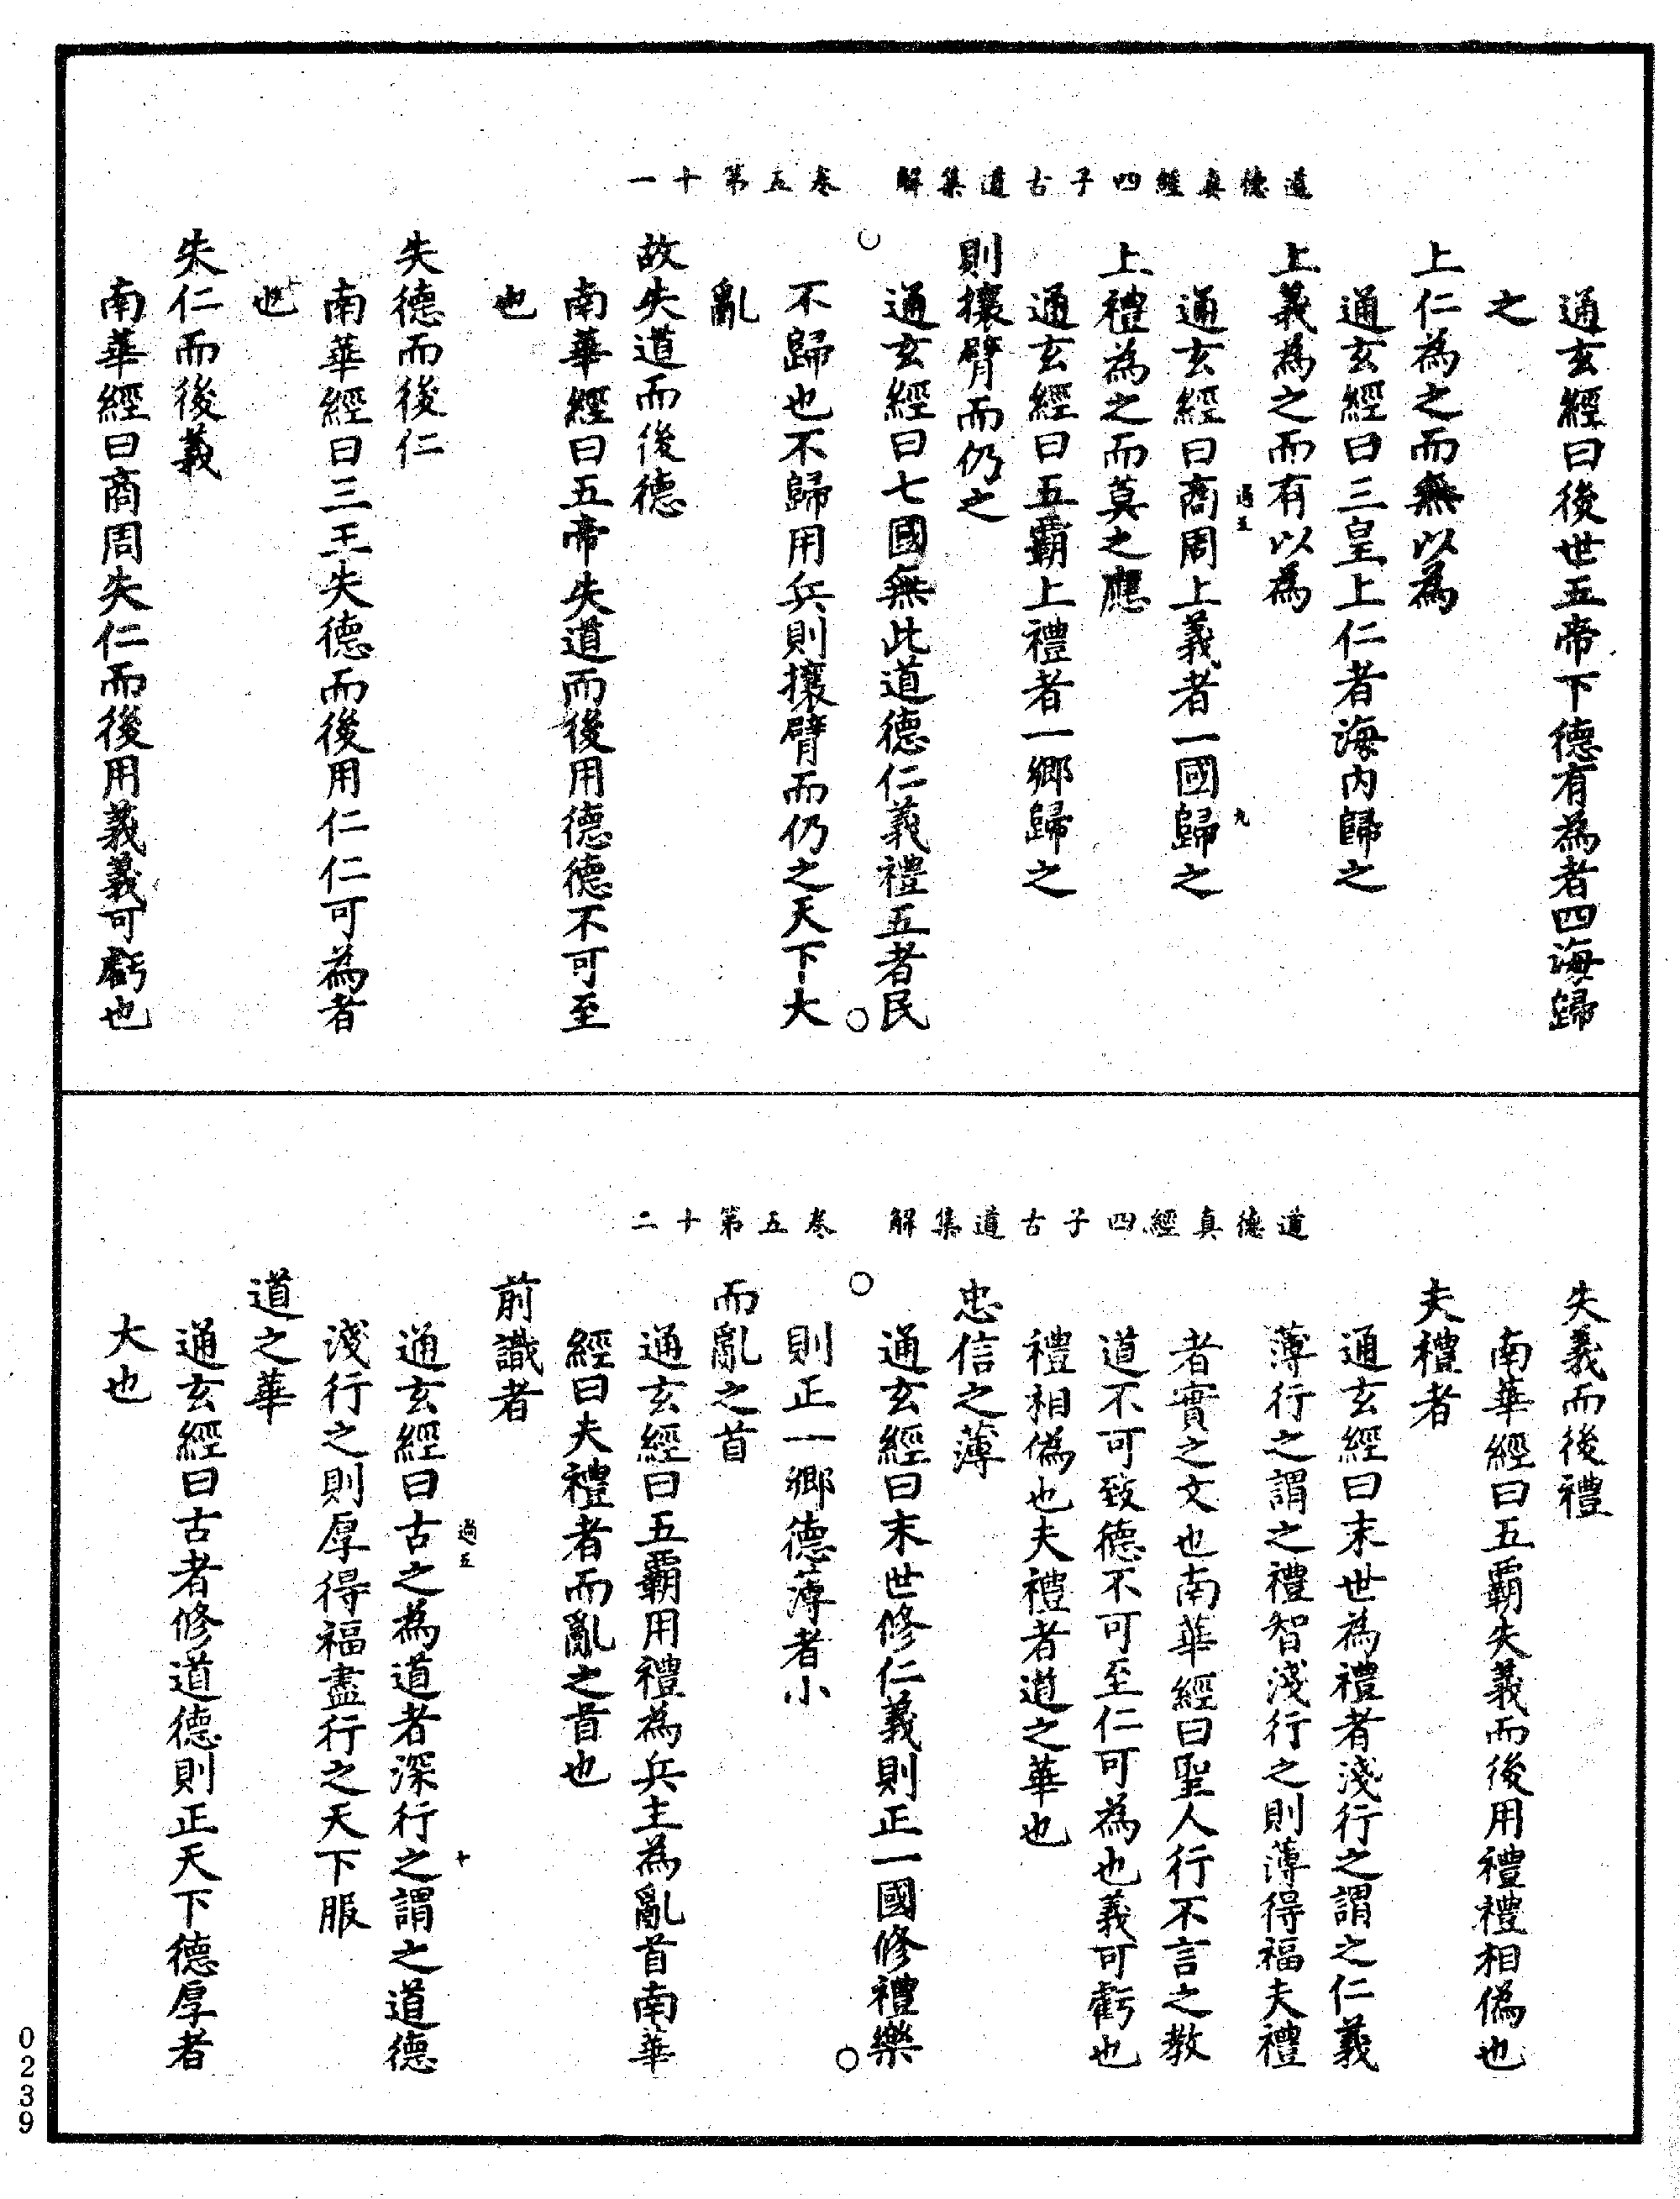 道德真經四子古道集解　卷五第十一
通玄經曰後世五帝下德有為者四海歸
之
上仁為之而無以為
通玄經曰三皇上仁者海內歸之
上義為之而有以為
過五　九
通玄經曰商周上義者一國歸之
上禮為之而莫之應
通玄經曰五霸上禮者一鄉歸之
則攘臂而仍之
通玄經曰七國無此道德仁義禮五者民
不歸也不歸用兵則攘臂而仍之天下大
亂
故失道而後德
南華經曰五帝失道而後用德德不可至
也
失德而後仁
南華經曰三王失德而後用仁仁可為者
也
失仁而後義
南華經曰商周失仁而後用義義可虧也
道德真經四子古道集解　卷五第十二
失義而後禮
南華經曰五霸失義而後用禮禮相偽也
夫禮者
通玄經曰末世為禮者淺行之謂之仁義
薄行之謂之禮智淺行之則薄得福夫禮
者實之文也南華經曰聖人行不言之教
道不可致德不可至仁可為也義可虧也
禮相偽也夫禮者道之華也
忠信之薄
通玄經曰末世修仁義則正一國修禮樂
則正一鄉德薄者小
而亂之首
通玄經曰五霸用禮為兵主為亂首南華
經曰夫禮者而亂之首也
前識者
過五　十
通玄經曰古之為道者深行之謂之道德
淺行之則厚得福盡行之天下服
道之華
通玄經曰古者修道德則正天下德厚者
大也
0239